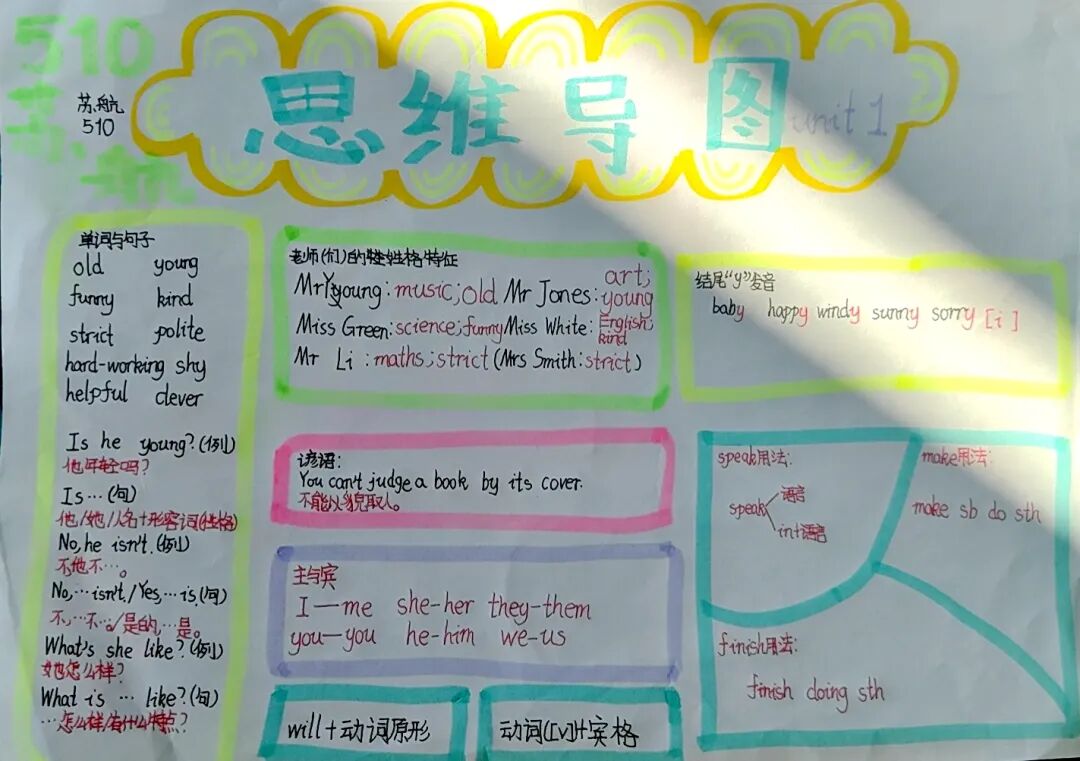 510
苏航
苏航
510
思维导图
unit 1
单词与句子
old young
funny kind
strict polite
hard-working shy
helpful clever
Is he young?(例)
他年轻吗?
Is…(句)
他/她/人名+形容词(性格)
No, he isn't.(例)
不,他不…。
No,…isn't./Yes,…is.(句)
不,…不…。/是的,…是。
What's she like?(例)
她怎么样?
What is … like?(句)
…怎么样/有什么特点?
老师(们)的性格特征
Mr Young: music; old Mr Jones: art; young
Miss Green: science; funny Miss White: English; kind
Mr Li : maths; strict (Mrs Smith: strict)
谚语:
You can't judge a book by its cover.
不能以貌取人。
主与宾
I—me she-her they-them
you—you he-him we-us
will+动词原形
动词([v])+宾格
结尾“y”发音
baby happy windy sunny sorry [i]
speak用法:
speak
语言
int语言
make用法:
make sb do sth
finish用法:
finish doing sth